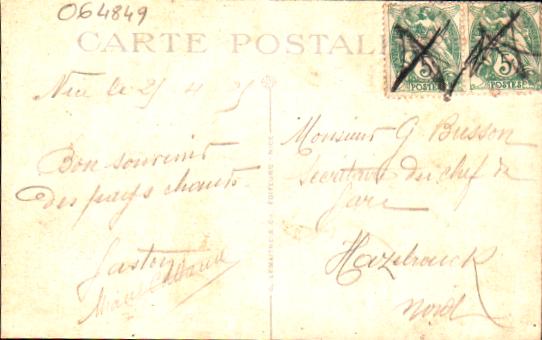 064849
CARTE POSTALE
5c 5c
POSTES POSTES
Nice le 21 4
Bon souvenir
des pays chauds
Gaston
G. LEMAITRE & Cie EDITEURS NICE
Monsieur G Busson
Secrétaire du chef de
Gare
Hazebrouck
Nord